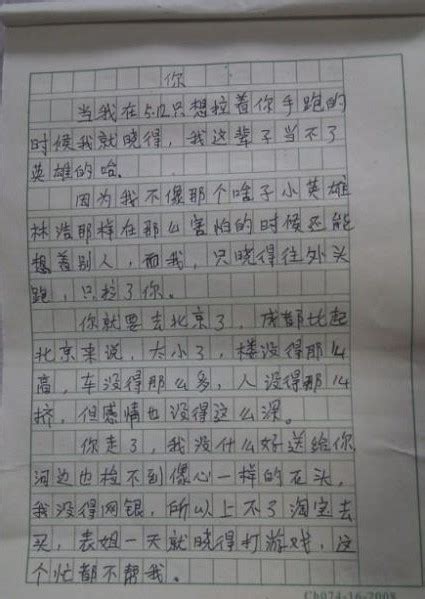 你
当我在5.12只想拉着你手跑的
时候我就晓得,我这辈子当不了
英雄的哈。
因为我不像那个啥子小英雄
林浩那样在那么害怕的时候还能
想着别人,而我,只晓得往外头
跑,只拉了你。
你就要去北京了,成都比起
北京来说,太小了,楼没得那么
高,车没得那么多,人没得那么
挤,但感情也没得这么深。
你走了,我没什么好送给你
河边也捡不到像心一样的石头,
我没得网银,所以上不了淘宝去
买,表姐一天就晓得打游戏,这
个忙都不帮我。
Ch074-16-2008